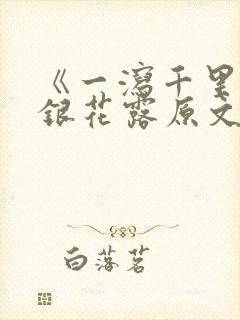 《一泻千里
银花露原文
白落茗